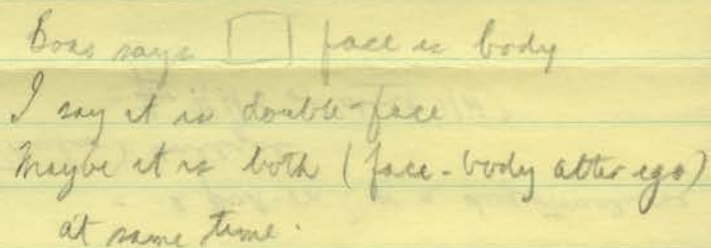 Boas says face is body
I say it is double-face
Maybe it is both (face-body alter ego)
at same time.